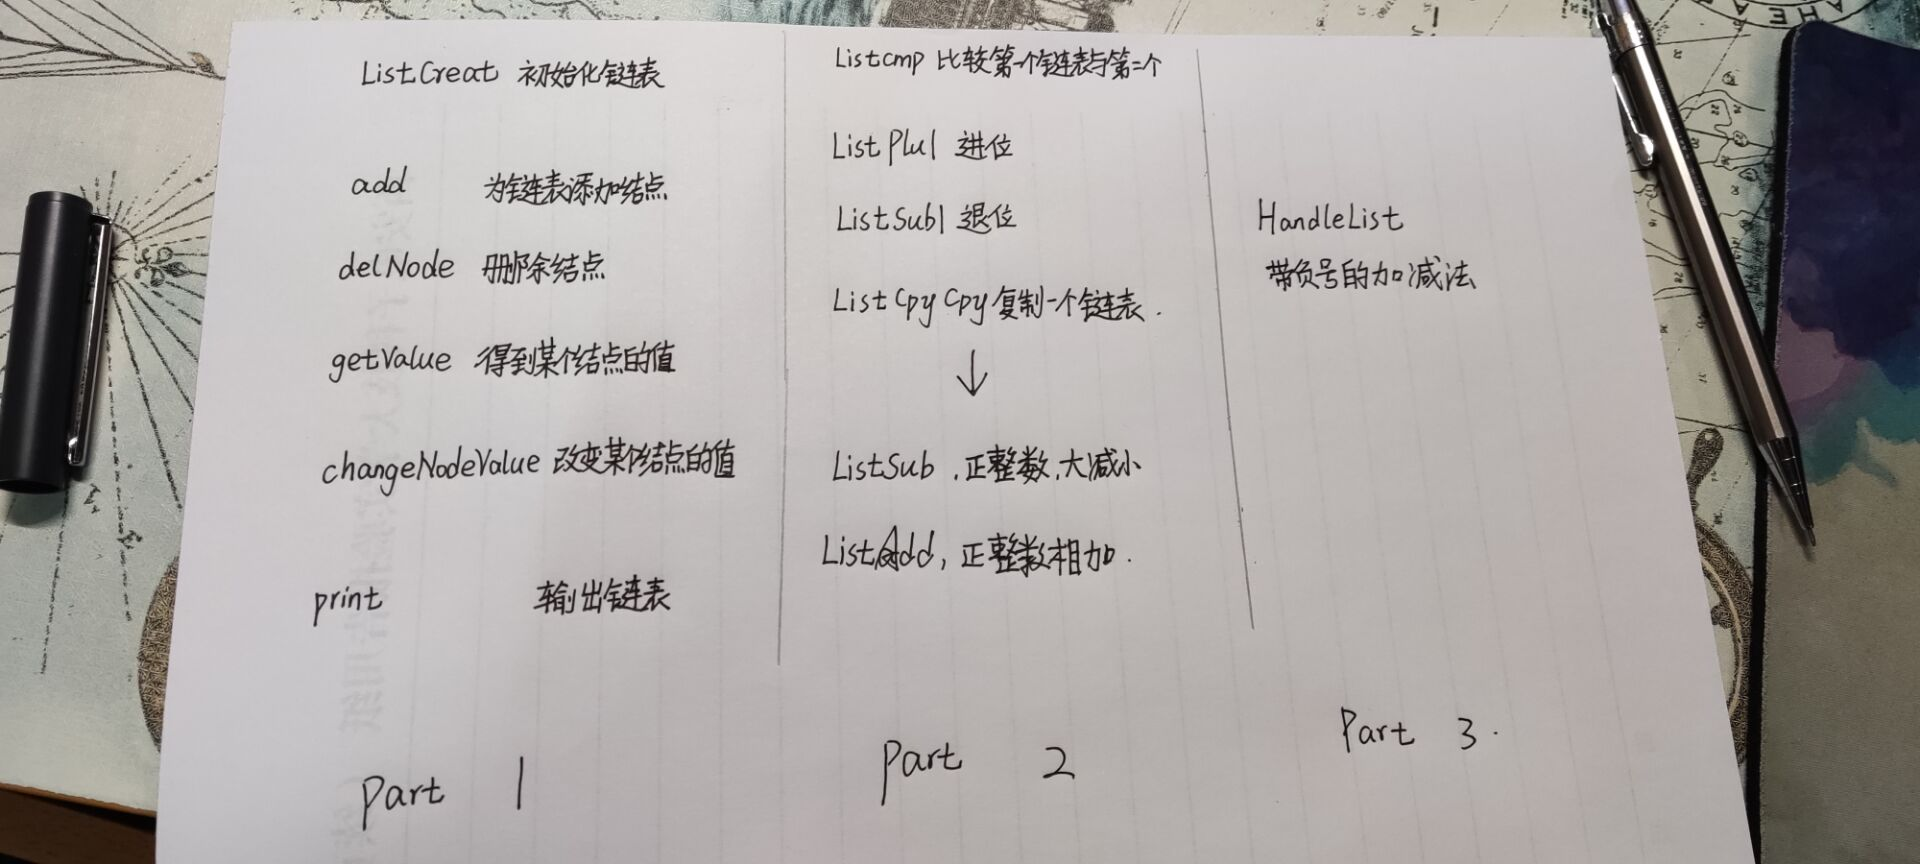 ListCreat 初始化链表
add 为链表添加结点
delNode 删除结点
getValue 得到某个结点的值
changeNodeValue 改变某个结点的值
print 输出链表
Part 1
Listcmp 比较第一个链表与第二个
ListPlu1 进位
ListSub1 退位
ListCpy Cpy 复制一个链表.
↓
ListSub.正整数.大减小
ListAdd,正整数相加.
Part 2
HandleList
带负号的加减法
Part 3.